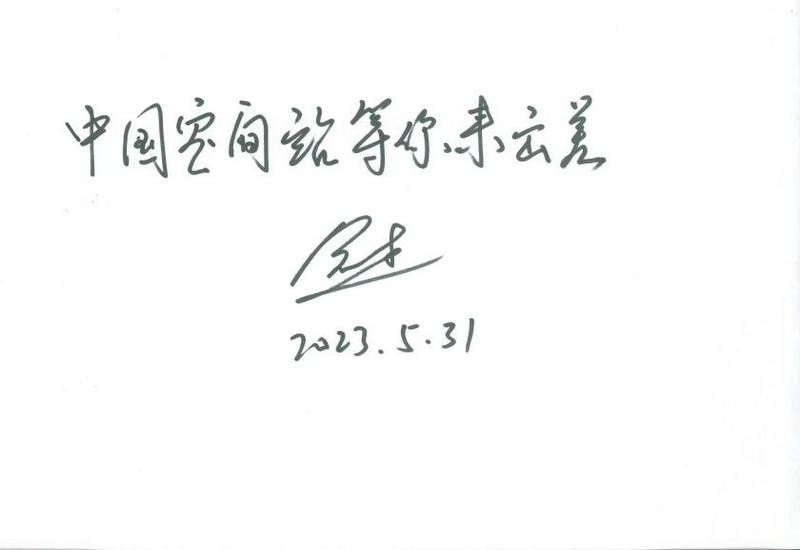 中国空间站等你来云差
2023.5.31